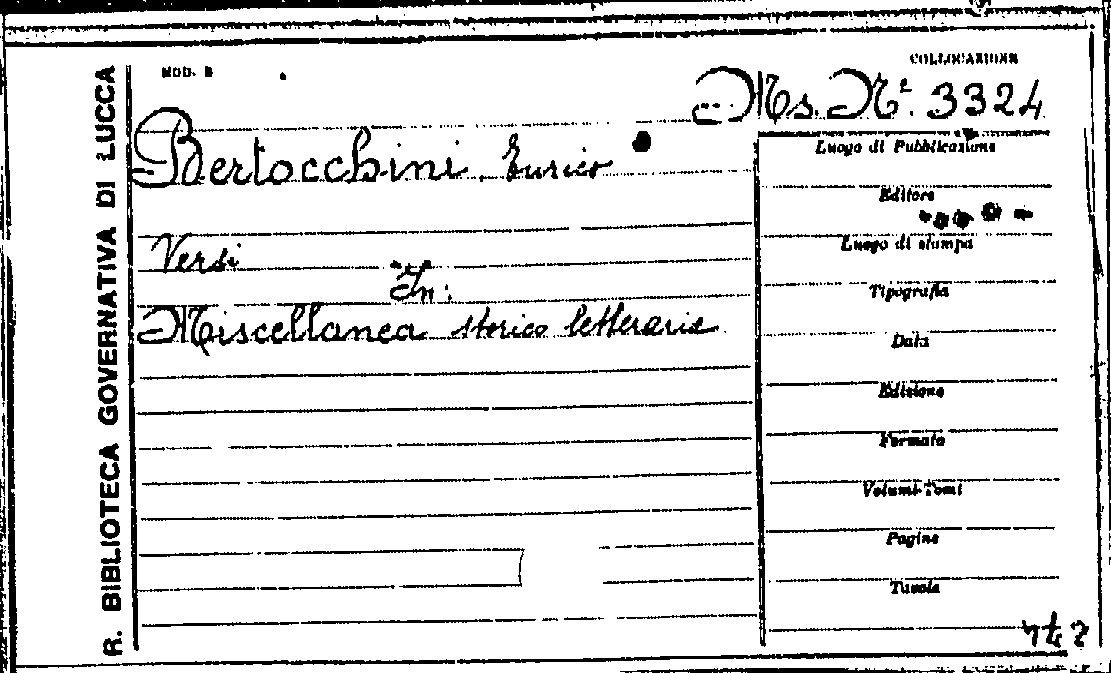 R. BIBLIOTECA GOVERNATIVA DI LUCCA
MOD. B
COLLOCAZIONE
Ms. Nº. 3324
Bertocchini, Enrico
Versi
In:
Miscellanea storico letteraria
Luogo di Pubblicazione
Editore
Luogo di stampa
Tipografia
Data
Edizione
Formato
Volumi-Tomi
Pagine
Tavole